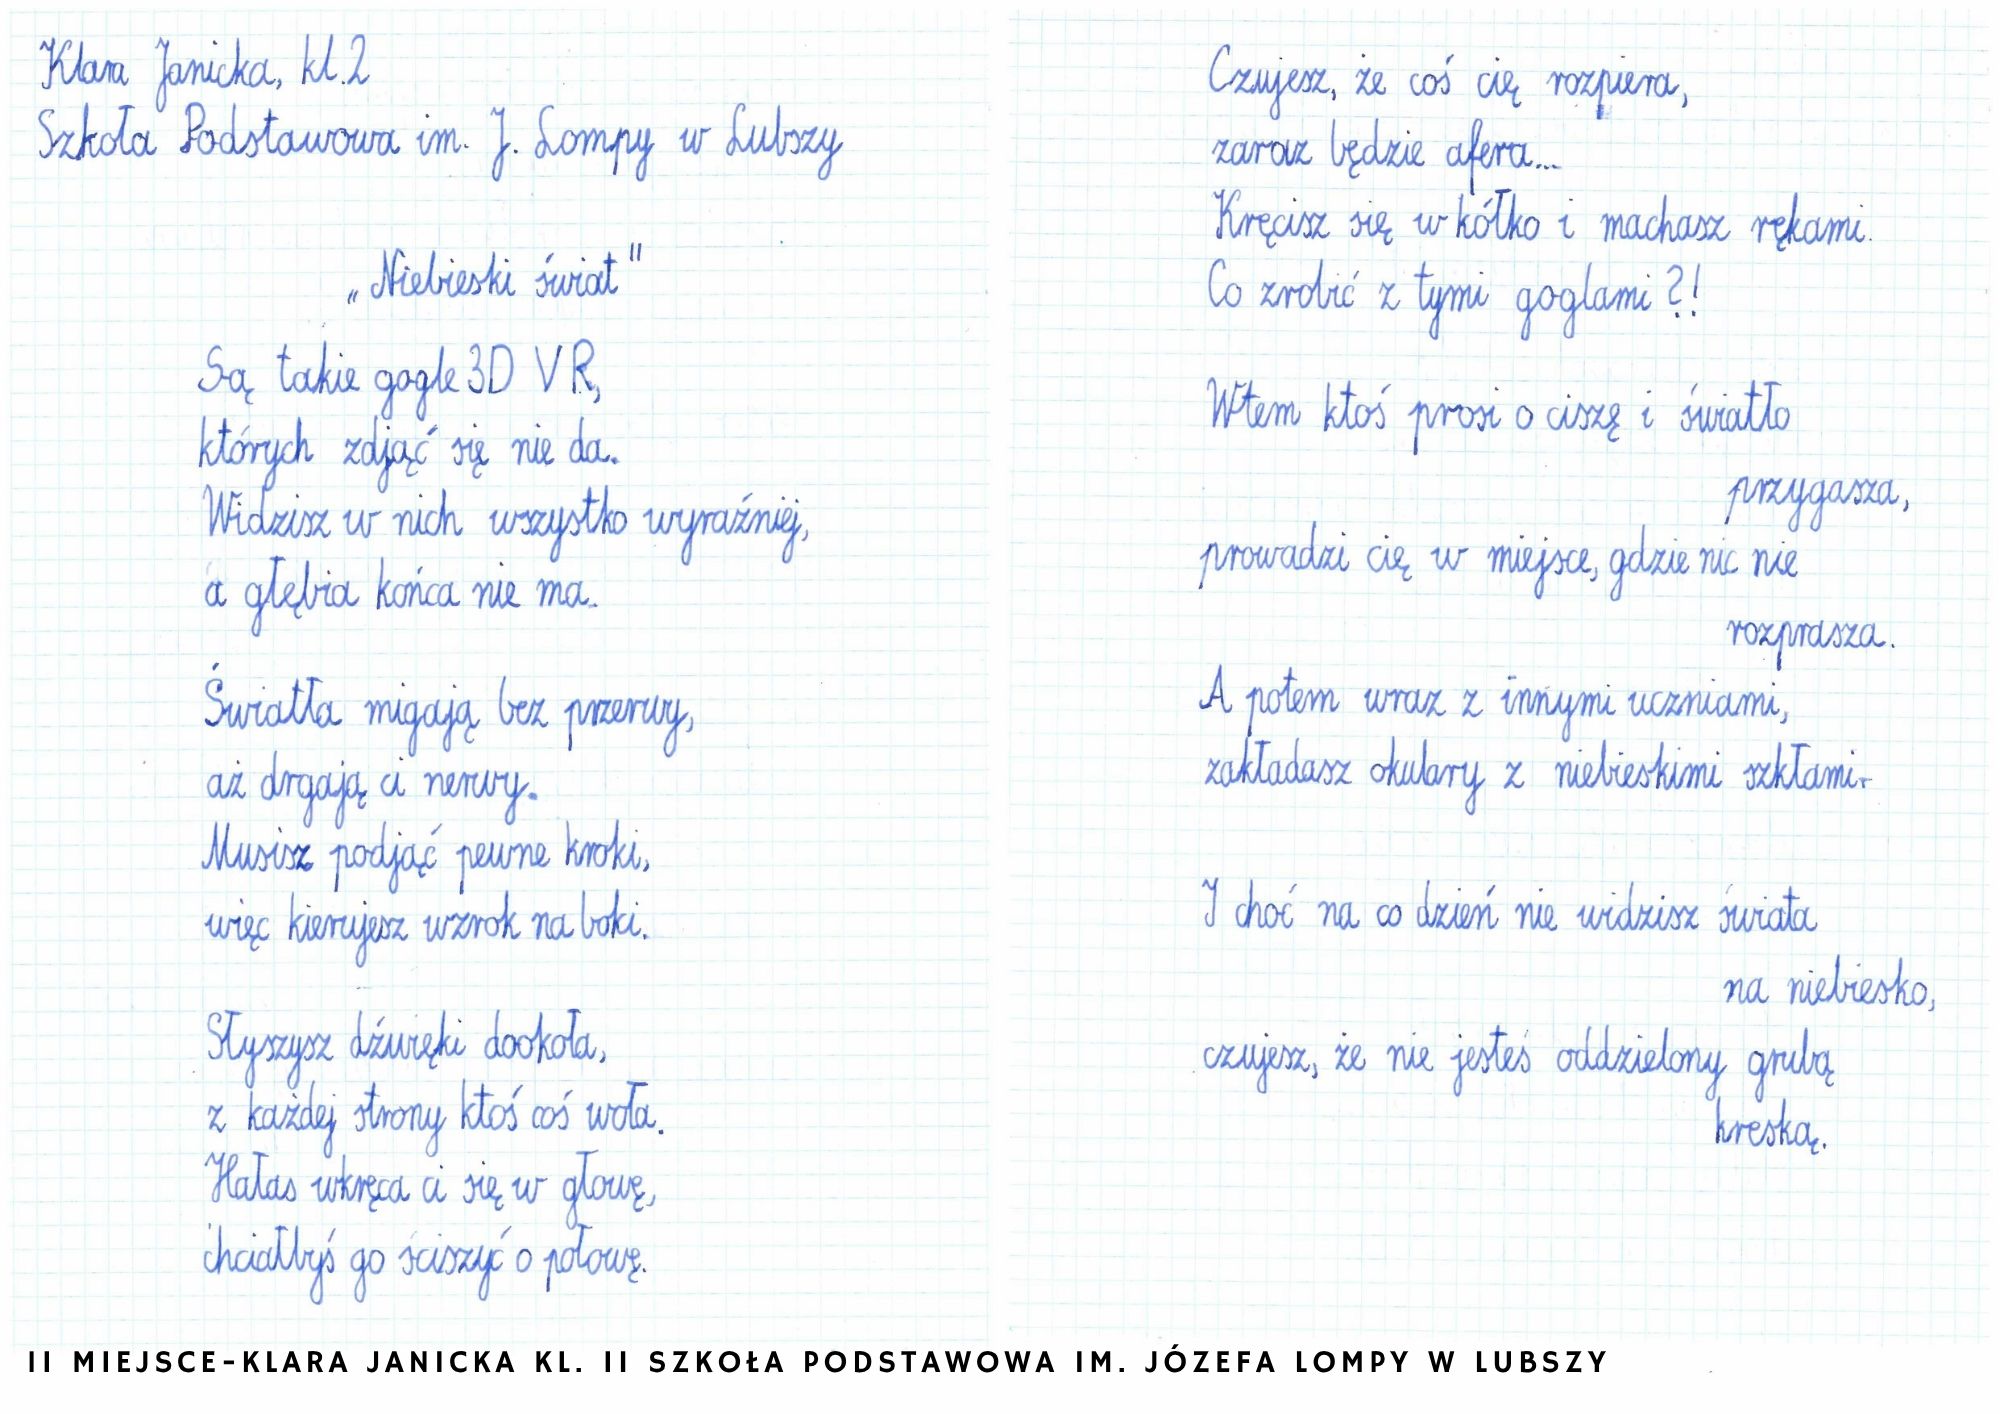 Klara Janicka, kl.2
Szkoła Podstawowa im. J. Lompy w Lubszy
„Niebieski świat"
Są takie gogle 3D VR,
których zdjąć się nie da.
Widzisz w nich wszystko wyraźniej,
a głębia końca nie ma.
Światła migają bez przerwy,
aż drgają ci nerwy.
Musisz podjąć pewne kroki,
więc kierujesz wzrok na boki.
Słyszysz dźwięki dookoła,
z każdej strony ktoś coś woła.
Hałas wkręca ci się w głowę,
chciałbyś go ściszyć o połowę.
Czujesz, że coś cię rozpiera,
zaraz będzie afera...
Kręcisz się w kółko i machasz rękami.
Co zrobić z tymi goglami?!
Wtem ktoś prosi o ciszę i światło
przygasza,
prowadzi cię w miejsce, gdzie nic nie
rozprasza.
A potem wraz z innymi uczniami,
zakładasz okulary z niebieskimi szkłami.
I choć na co dzień nie widzisz świata
na niebiesko,
czujesz, że nie jesteś oddzielony grubą
kreską.
II MIEJSCE-KLARA JANICKA KL. II SZKOŁA PODSTAWOWA IM. JÓZEFA LOMPY W LUBSZY